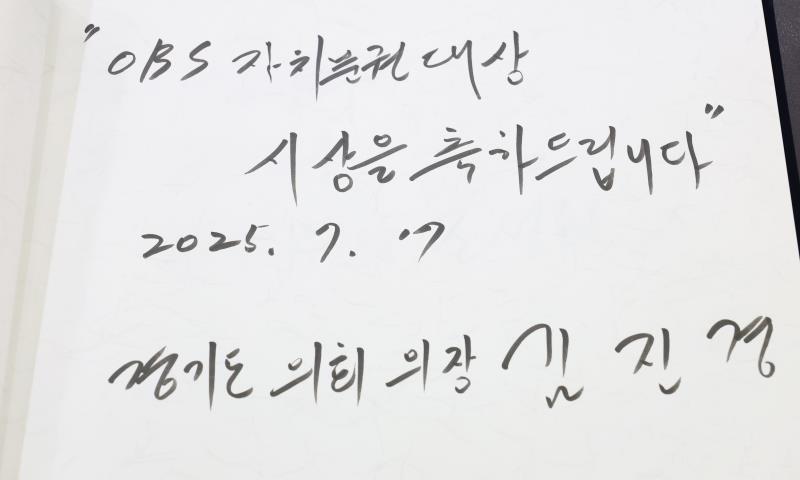 "OBS 자치분권대상
시상을 축하드립니다"
2025. 7. 17
경기도 의회 의장 김진경